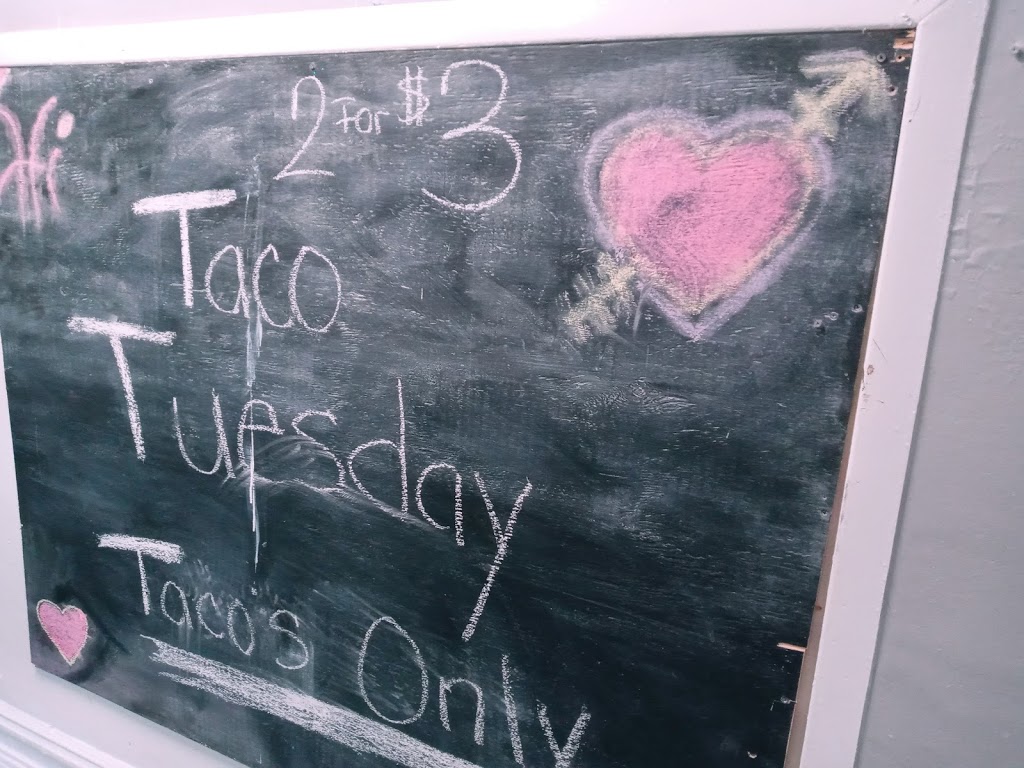 2 For $3
Taco
Tuesday
Taco's Only